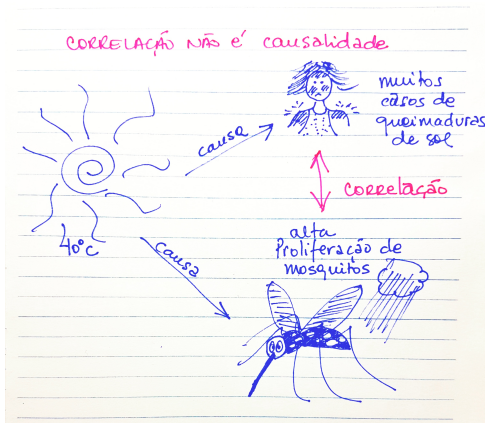 CORRELAÇÃO NÃO É causalidade
muitos
casos de
queimaduras
de sol
causa
CORRELAÇÃO
40°C
causa
alta
Proliferação de
mosquitos